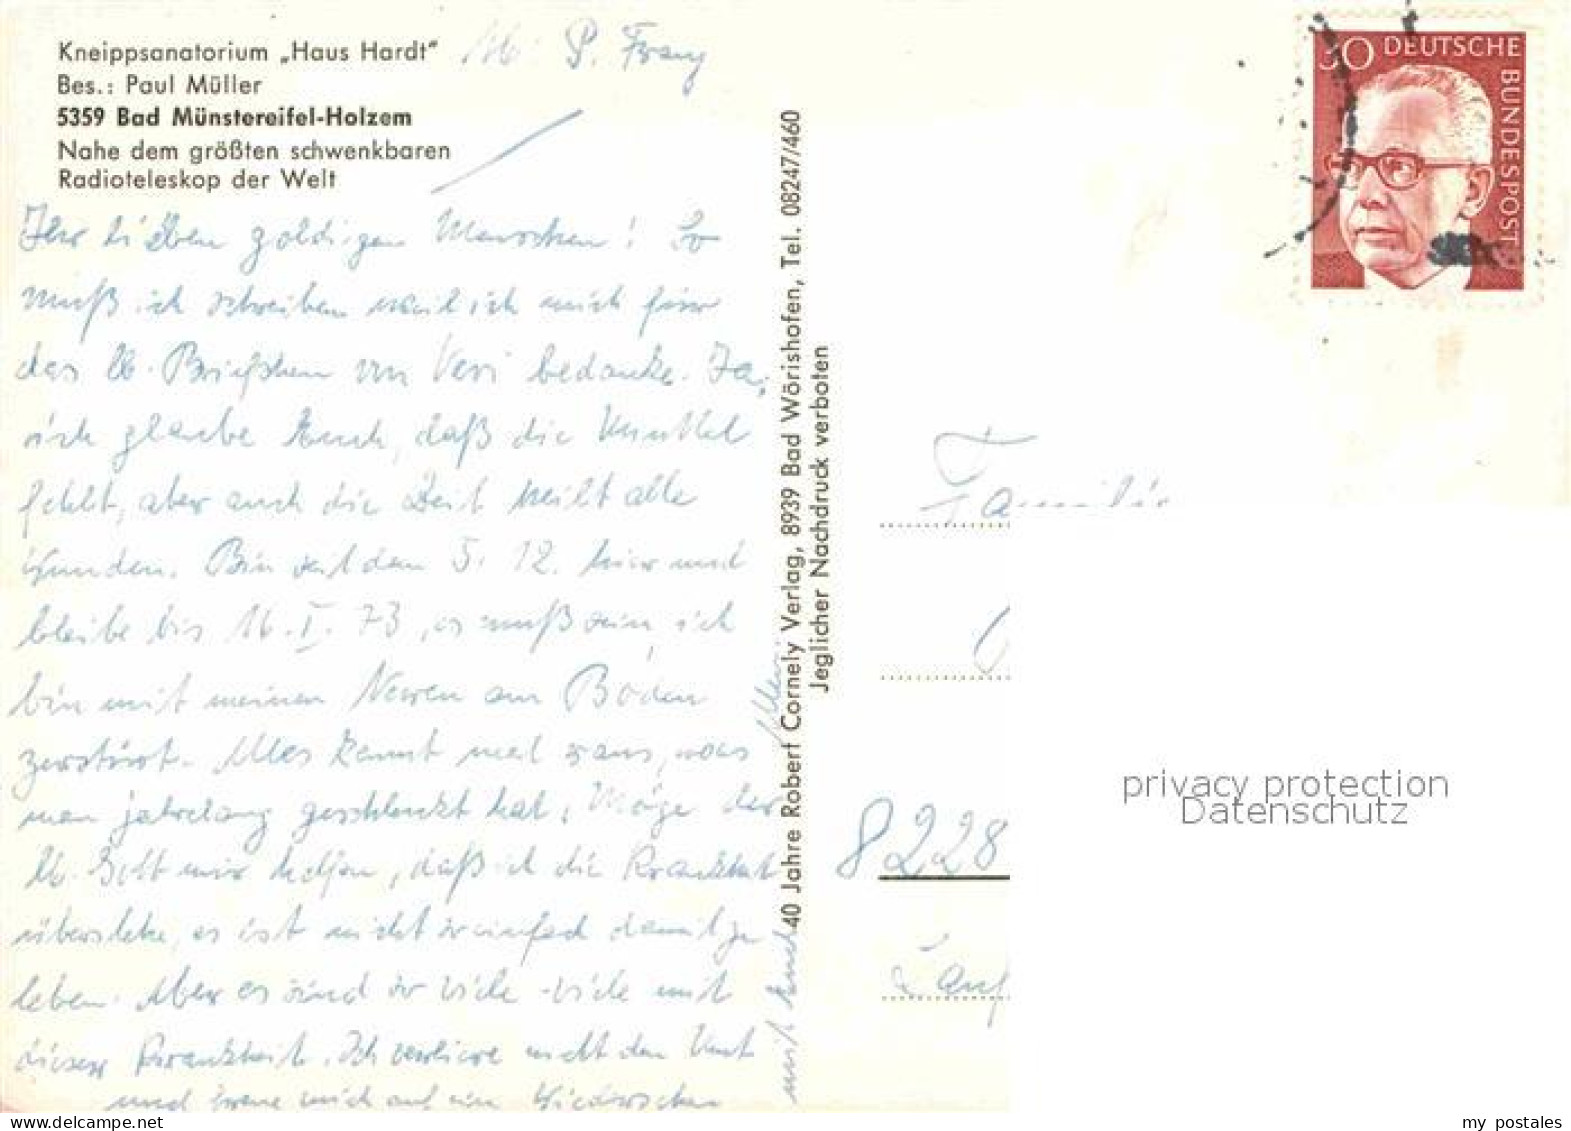 Kneippsanatorium „Haus Hardt"
Bes.: Paul Müller
5359 Bad Münstereifel-Holzem
Nahe dem größten schwenkbaren
Radioteleskop der Welt
P. Franz
Ihr lieben goldigen Menschen! So
muß ich schreiben weil ich mich für
das lb. Briefchen von Veri bedanke. Ja,
ich glaube Euch, daß die Mutter
fehlt, aber auch die Zeit heilt alle
Wunden. Bin seit dem 5. 12. hier und
bleibe bis 16. I. 73, es muß sein, ich
bin mit meinen Nerven am Boden
zerstört. Alles kommt mal raus, was
man jahrelang geschluckt hat. Möge der
lb. Gott mir helfen, daß ich die Krankheit
überstehe, es ist nicht so einfach damit zu
leben. Aber es sind so viele -viele mit
dieser Krankheit. Ich verliere nicht den Mut
und freue mich auf ein Wiedersehen
mit Euch allen
40 Jahre Robert Cornely Verlag, 8939 Bad Wörishofen, Tel. 08247/460
Jeglicher Nachdruck verboten
30 DEUTSCHE BUNDESPOST
Familie
8228
privacy protection
Datenschutz
my postales